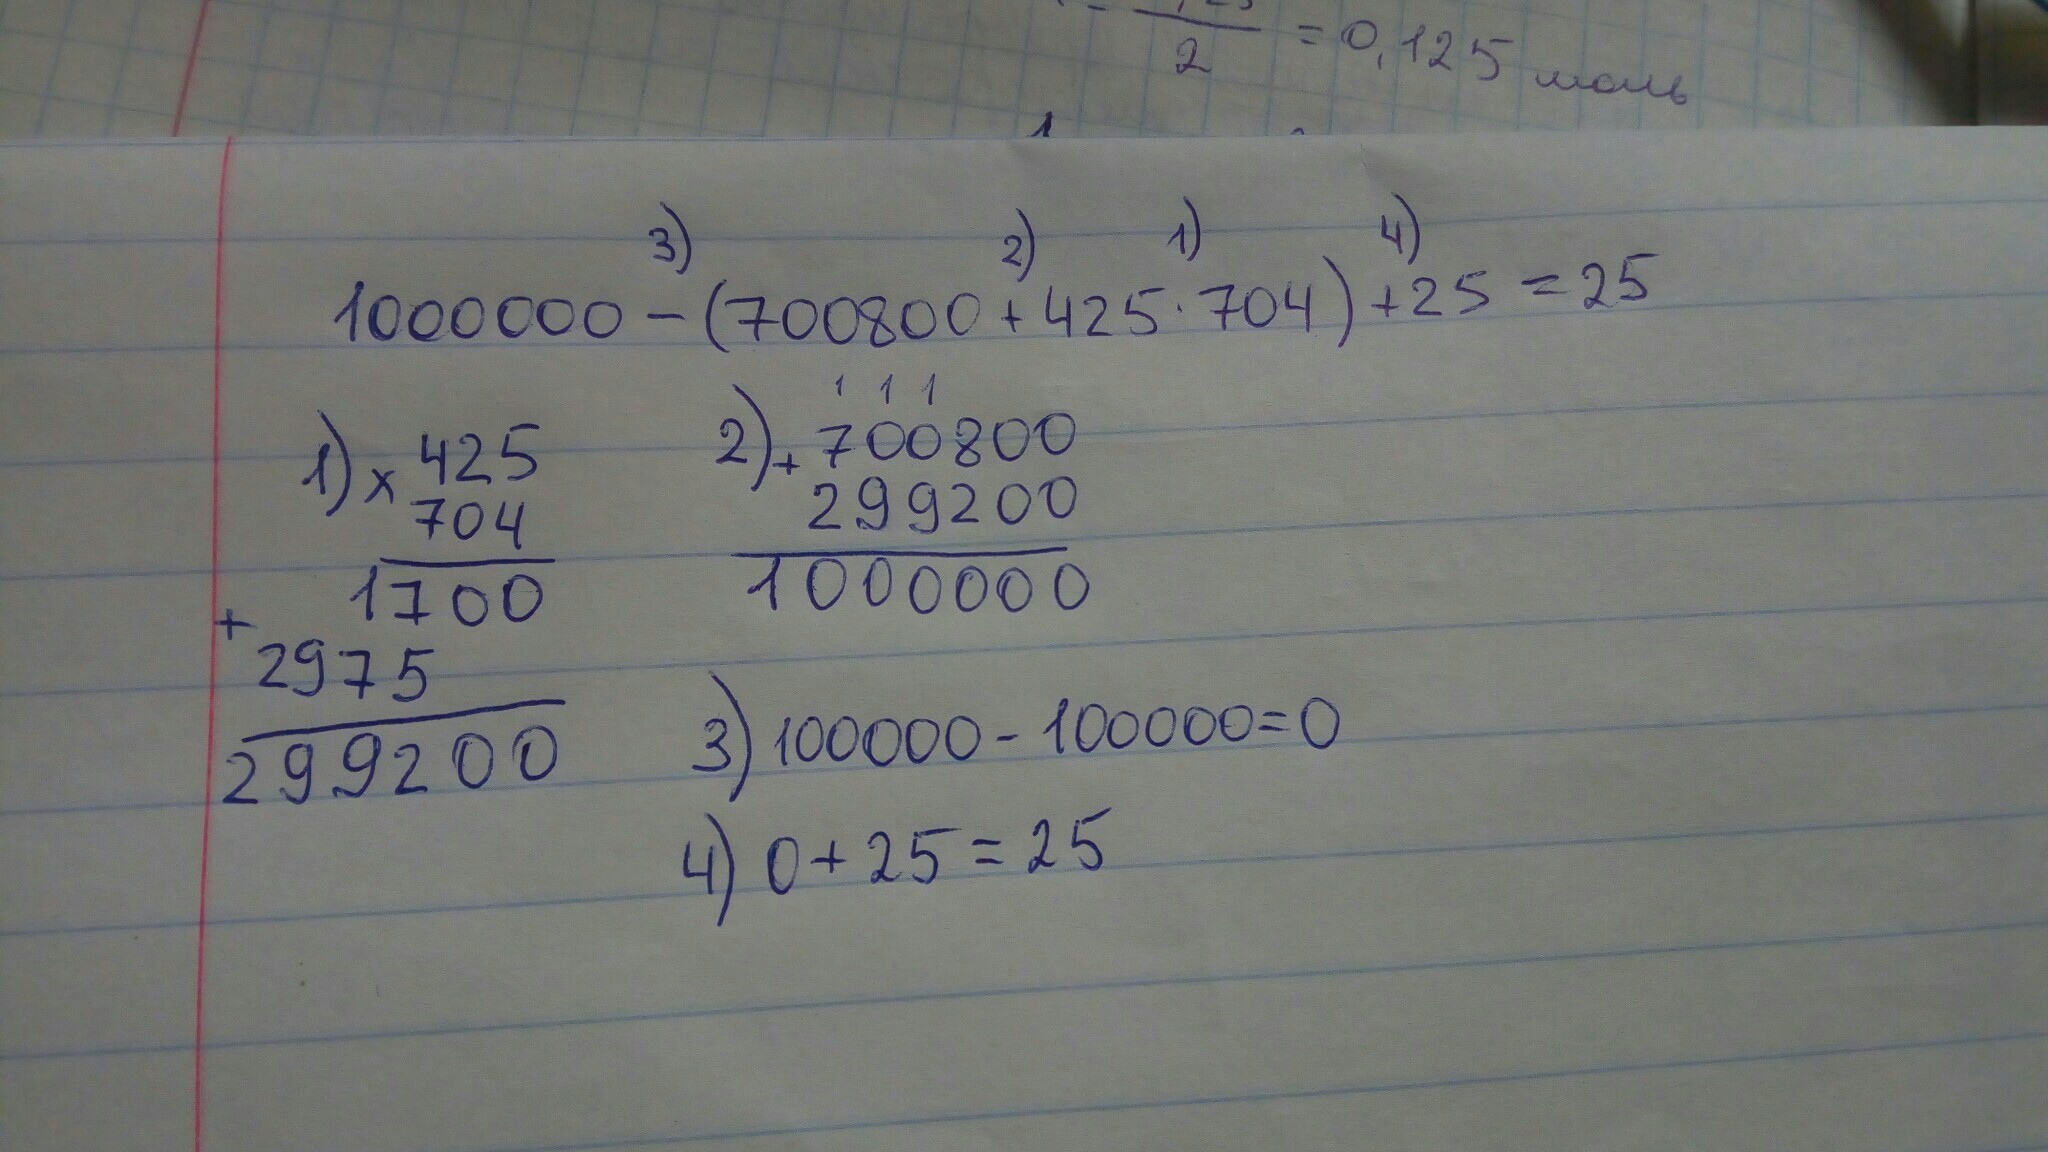 2 = 0,125 моль
3) 2) 1) 4)
1000000 - (700800 + 425 · 704) + 25 = 25
1) x 425
704
1700
+
2975
299200
1 1 1
2) + 700800
299200
1000000
3) 100000 - 100000 = 0
4) 0 + 25 = 25